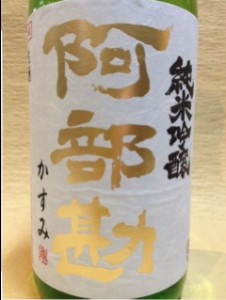 純米吟醸
阿部勘
かすみ